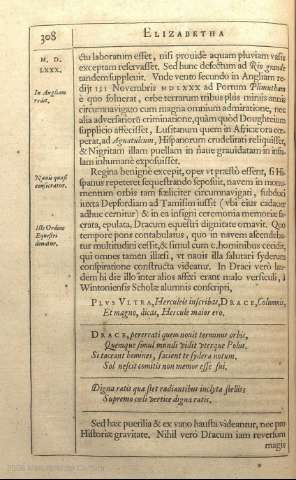 308
ELIZABETHA
M. D.
LXXX.
In Angliam
redit,
Navis quasi
consecratur.
Ille Ordine
Equestri
donatur.
ctu laboratum esset, nisi provide aquam pluviam vasis
exceptam reservasset. Sed hunc defectum ad Rio grande
tandem supplevit. Unde vento secundo in Angliam re-
dijt III Novembris MDLXXX ad Portum Plimutham
è quo solverat, orbe terrarum tribus plùs minùs annis
circumnavigato cum magna omnium admiratione, nec
alia adversariorū criminatione, quàm quòd Doughteium
supplicio affecisset, Lusitanum quem in Africæ ora ce-
perat, ad Aguatulcum, Hispanorum crudelitati reliquisset,
& Nigritam illam puellam in nave gravidatam in insu-
lam inhumanè exposuisset.
Regina benignè excepit, opes ut præstò essent, si His-
panus repeteret sequestrandò seposuit, navem in monu-
mentum orbis tam feliciter circumnavigati, subduci
juxta Depfordiam ad Tamisim jussit (ubi eius cadaver
adhuc cernitur) & in ea insigni ceremonia memoriæ sa-
crata, epulata, Dracum equestri dignitate ornavit. Quo
tempore pons contabulatus, quo in navem ascendeba-
tur multitudini cessit, & simul cum c. hominibus cecidit,
qui omnes tamen illæsi, ut navis illa salutari syderum
conspiratione constructa videatur. In Draci verò lau-
dem hi die illo inter alios affixi erant malo versiculi, à
Wintoniensis Scholæ alumnis conscripti,
PLVS VLTRA, Herculeis inscribas, DRACE, Columnis,
Et magno, dicas, Hercule maior ero.
DRACE, pererrati quem novit terminus orbis,
Quemque simul mundi vidit uterque Polus.
Si taceant homines, facient te sydera notum,
Sol nescit comitis non memor esse sui.
Digna ratis quæ stet radiantibus inclyta stellis;
Supremo cœli vertice digna ratis.
Sed hæc puerilia & ex vano hausta videantur, nec pro
Historiæ gravitate. Nihil verò Dracum iam reversum
magis